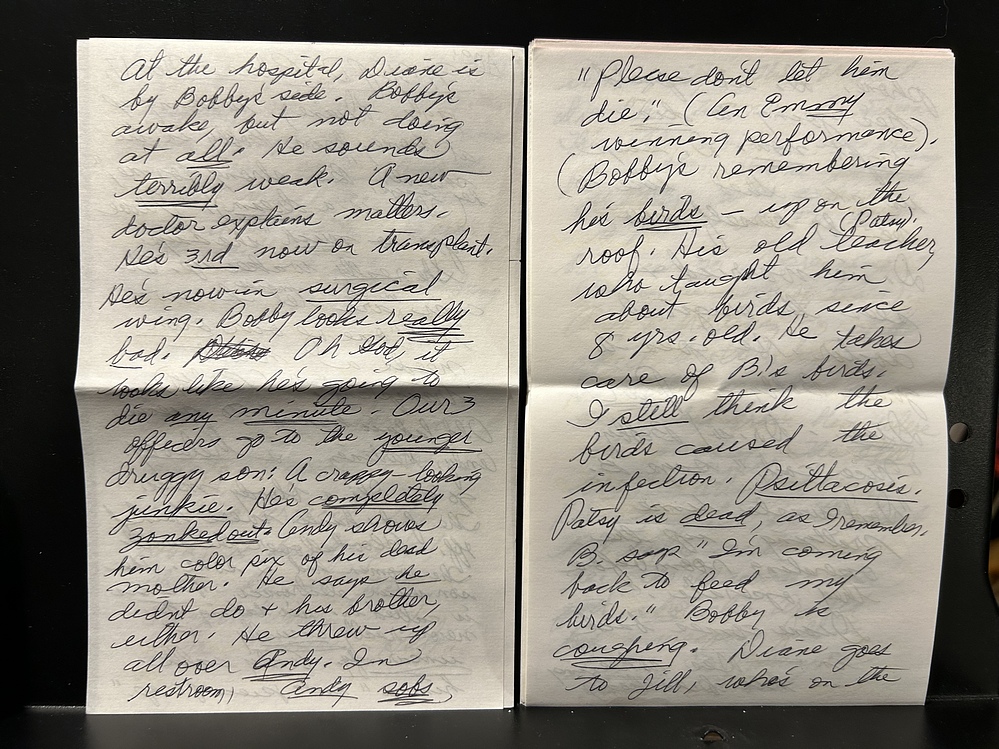 At the hospital, Diane is
by Bobby's side. Bobby's
awake, but not doing
at all. He sounds
terribly weak. A new
doctor explains matters.
He's 3rd now on transplant.
He's now in surgical
wing. Bobby looks really
bad. Oh God, it
looks like he's going to
die any minute. Our 3
officers go to the younger
druggy son: A crappy-looking
junkie. He's completely
zonked out. Andy shows
him color pix of his dead
mother. He says he
didnt do + his brother,
either. He threw up
all over Andy. In
restroom, Andy sobs,
"Please don't let him
die". (An Emmy
winning performance).
(Bobby's remembering
his birds — up on the
roof. His old teacher, (Patsy)
who taught him
about birds, since
8 yrs. old. He takes
care of B.'s birds.
I still think the
birds caused the
infection. Psittacosis.
Patsy is dead, as I remember.
B. says "I'm coming
back to feed my
birds." Bobby is
coughing. Diane goes
to Jill, who's on the